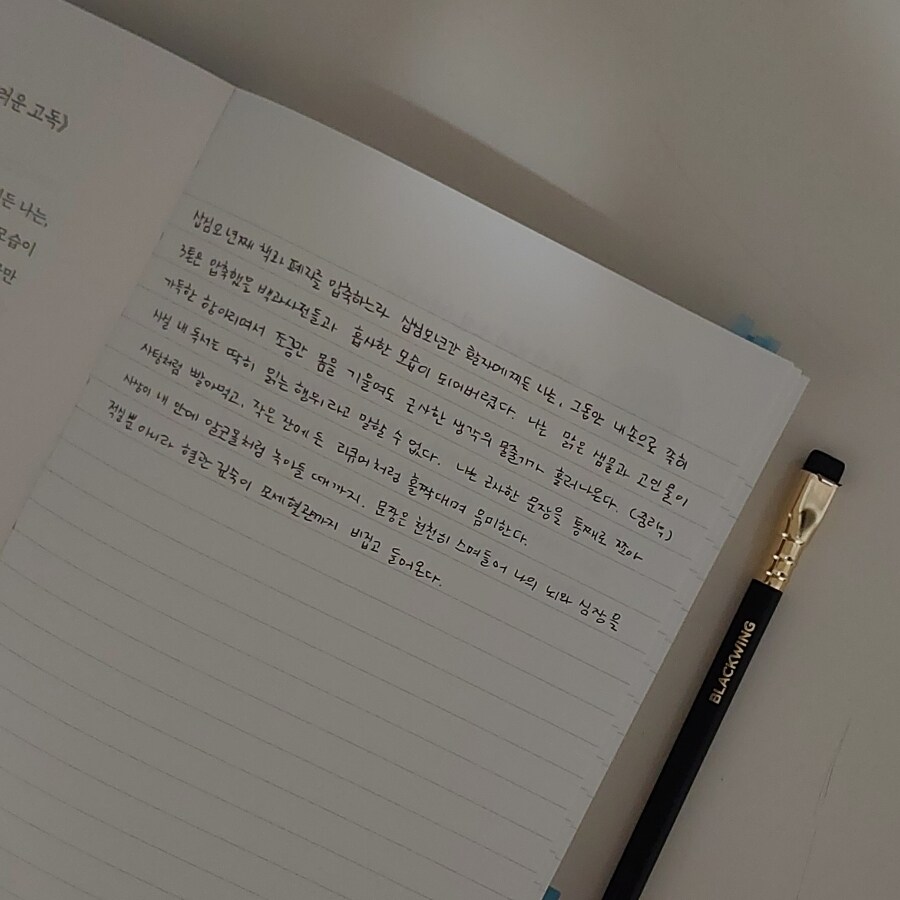 려운 고독》
든 나는,
모습이
삼십오년째 책과 폐지를 압축하느라 삼십오년간 활자에 찌든 나는, 그동안 내 손으로 족히
3톤은 압축했을 백과사전들과 흡사한 모습이 되어버렸다. 나는 맑은 샘물과 고인 물이
가득한 항아리여서 조금만 몸을 기울여도 근사한 생각의 물줄기가 흘러나온다. (중략)
사실 내 독서는 딱히 읽는 행위라고 말할 수 없다. 나는 근사한 문장을 통째로 쪼아
사탕처럼 빨아먹고, 작은 잔에 든 리큐어처럼 홀짝대며 음미한다.
사상이 내 안에 알코올처럼 녹아들 때까지. 문장은 천천히 스며들어 나의 뇌와 심장을
적실 뿐 아니라 혈관 깊숙이 모세혈관까지 비집고 들어온다.
BLACKWING